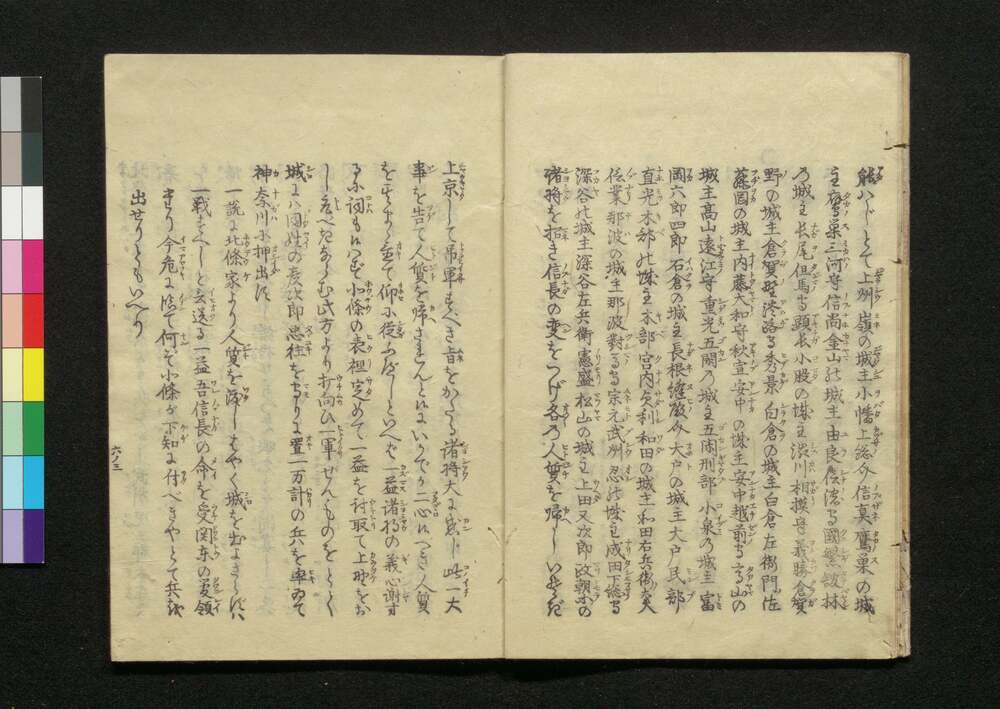 解ハじとて上州嶺の城主小幡上総介信真鷹巣の城
主鷹巣三河守信尚金山の城主由良信濃守國繁舘林
乃城主長尾但馬守顕長小股の城主渋川相摸守義勝倉賀
野の城主倉賀野淡路守秀景白倉の城主白倉左衛門佐
藤岡の城主内藤大和守秋宣安中の城主安中越前守高山の
城主高山遠江守重光五閑乃城主五閑刑部小泉乃城主冨
岡六郎四郎石倉の城主長根縫殿介大戸の城主大戸民部
直光木部の城主木部宮内矢利和田の城主和田右兵衛大夫
信業那波の城主那波對馬守宗元武州忍の城主成田下総守
深谷の城主深谷左兵衛憲盛松山の城主上田又次郎政朝等の
諸将を招き信長の変をつげ各乃人質を帰しいそぎ
上京して弔軍すべき旨をかたる諸将大に感じ此一大
事を告て人質を帰さるゝうへはいかでか二心有べき人質
を其まゝ重て仰に従ふべしといへば一益諸将の義心謝す
るに詞もなし北條の表裡定めて一益を討取て上野をお
城には同姓の彦次郎忠征を守りに置一万計の兵を率ゐて
神奈川に押出す
一説に北條家より人質を渡しはやく城を出よさらずハ
一戦すべしと云送る一益吾信長の命を受関東の管領
たり今危に臨て何ぞ北條が下知に付べきやとて兵を
出せりともいへり
六ノ三